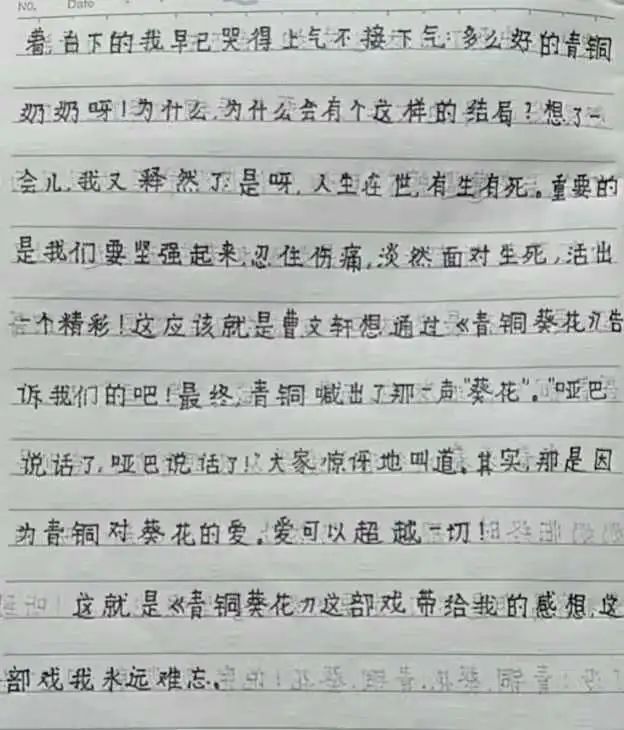 NO.  Date
着,台下的我早已哭得上气不接下气:多么好的青铜
奶奶呀!为什么,为什么会有个这样的结局?想了一
会儿,我又释然了:是呀,人生在世,有生有死。重要的
是我们要坚强起来,忍住伤痛,淡然面对生死,活出
一个精彩!这应该就是曹文轩想通过《青铜葵花》告
诉我们的吧!最终,青铜喊出了那一声“葵花”。“哑巴
说话了,哑巴说话了!”大家惊讶地叫道。其实,那是因
为青铜对葵花的爱。爱可以超越一切!
这就是《青铜葵花》这部戏带给我的感想,这
部戏我永远难忘。